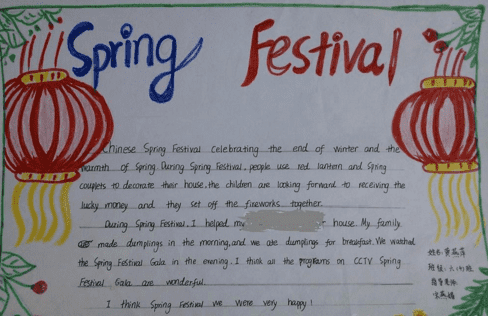 Spring Festival
Chinese Spring Festival celebrating the end of winter and the
warmth of Spring. During Spring Festival, people use red lantern and Spring
couplets to decorate their house. the children are looking forward to receiving the
lucky money and they set off the fireworks together.
During Spring Festival. I helped my house. My family
made dumplings in the morning, and we ate dumplings for breakfast. We watched
the Spring Festival Gala in the evening. I think all the programs on CCTV Spring
Festival Gala are wonderful.
I think Spring Festival we were very happy!
姓名:
班级: